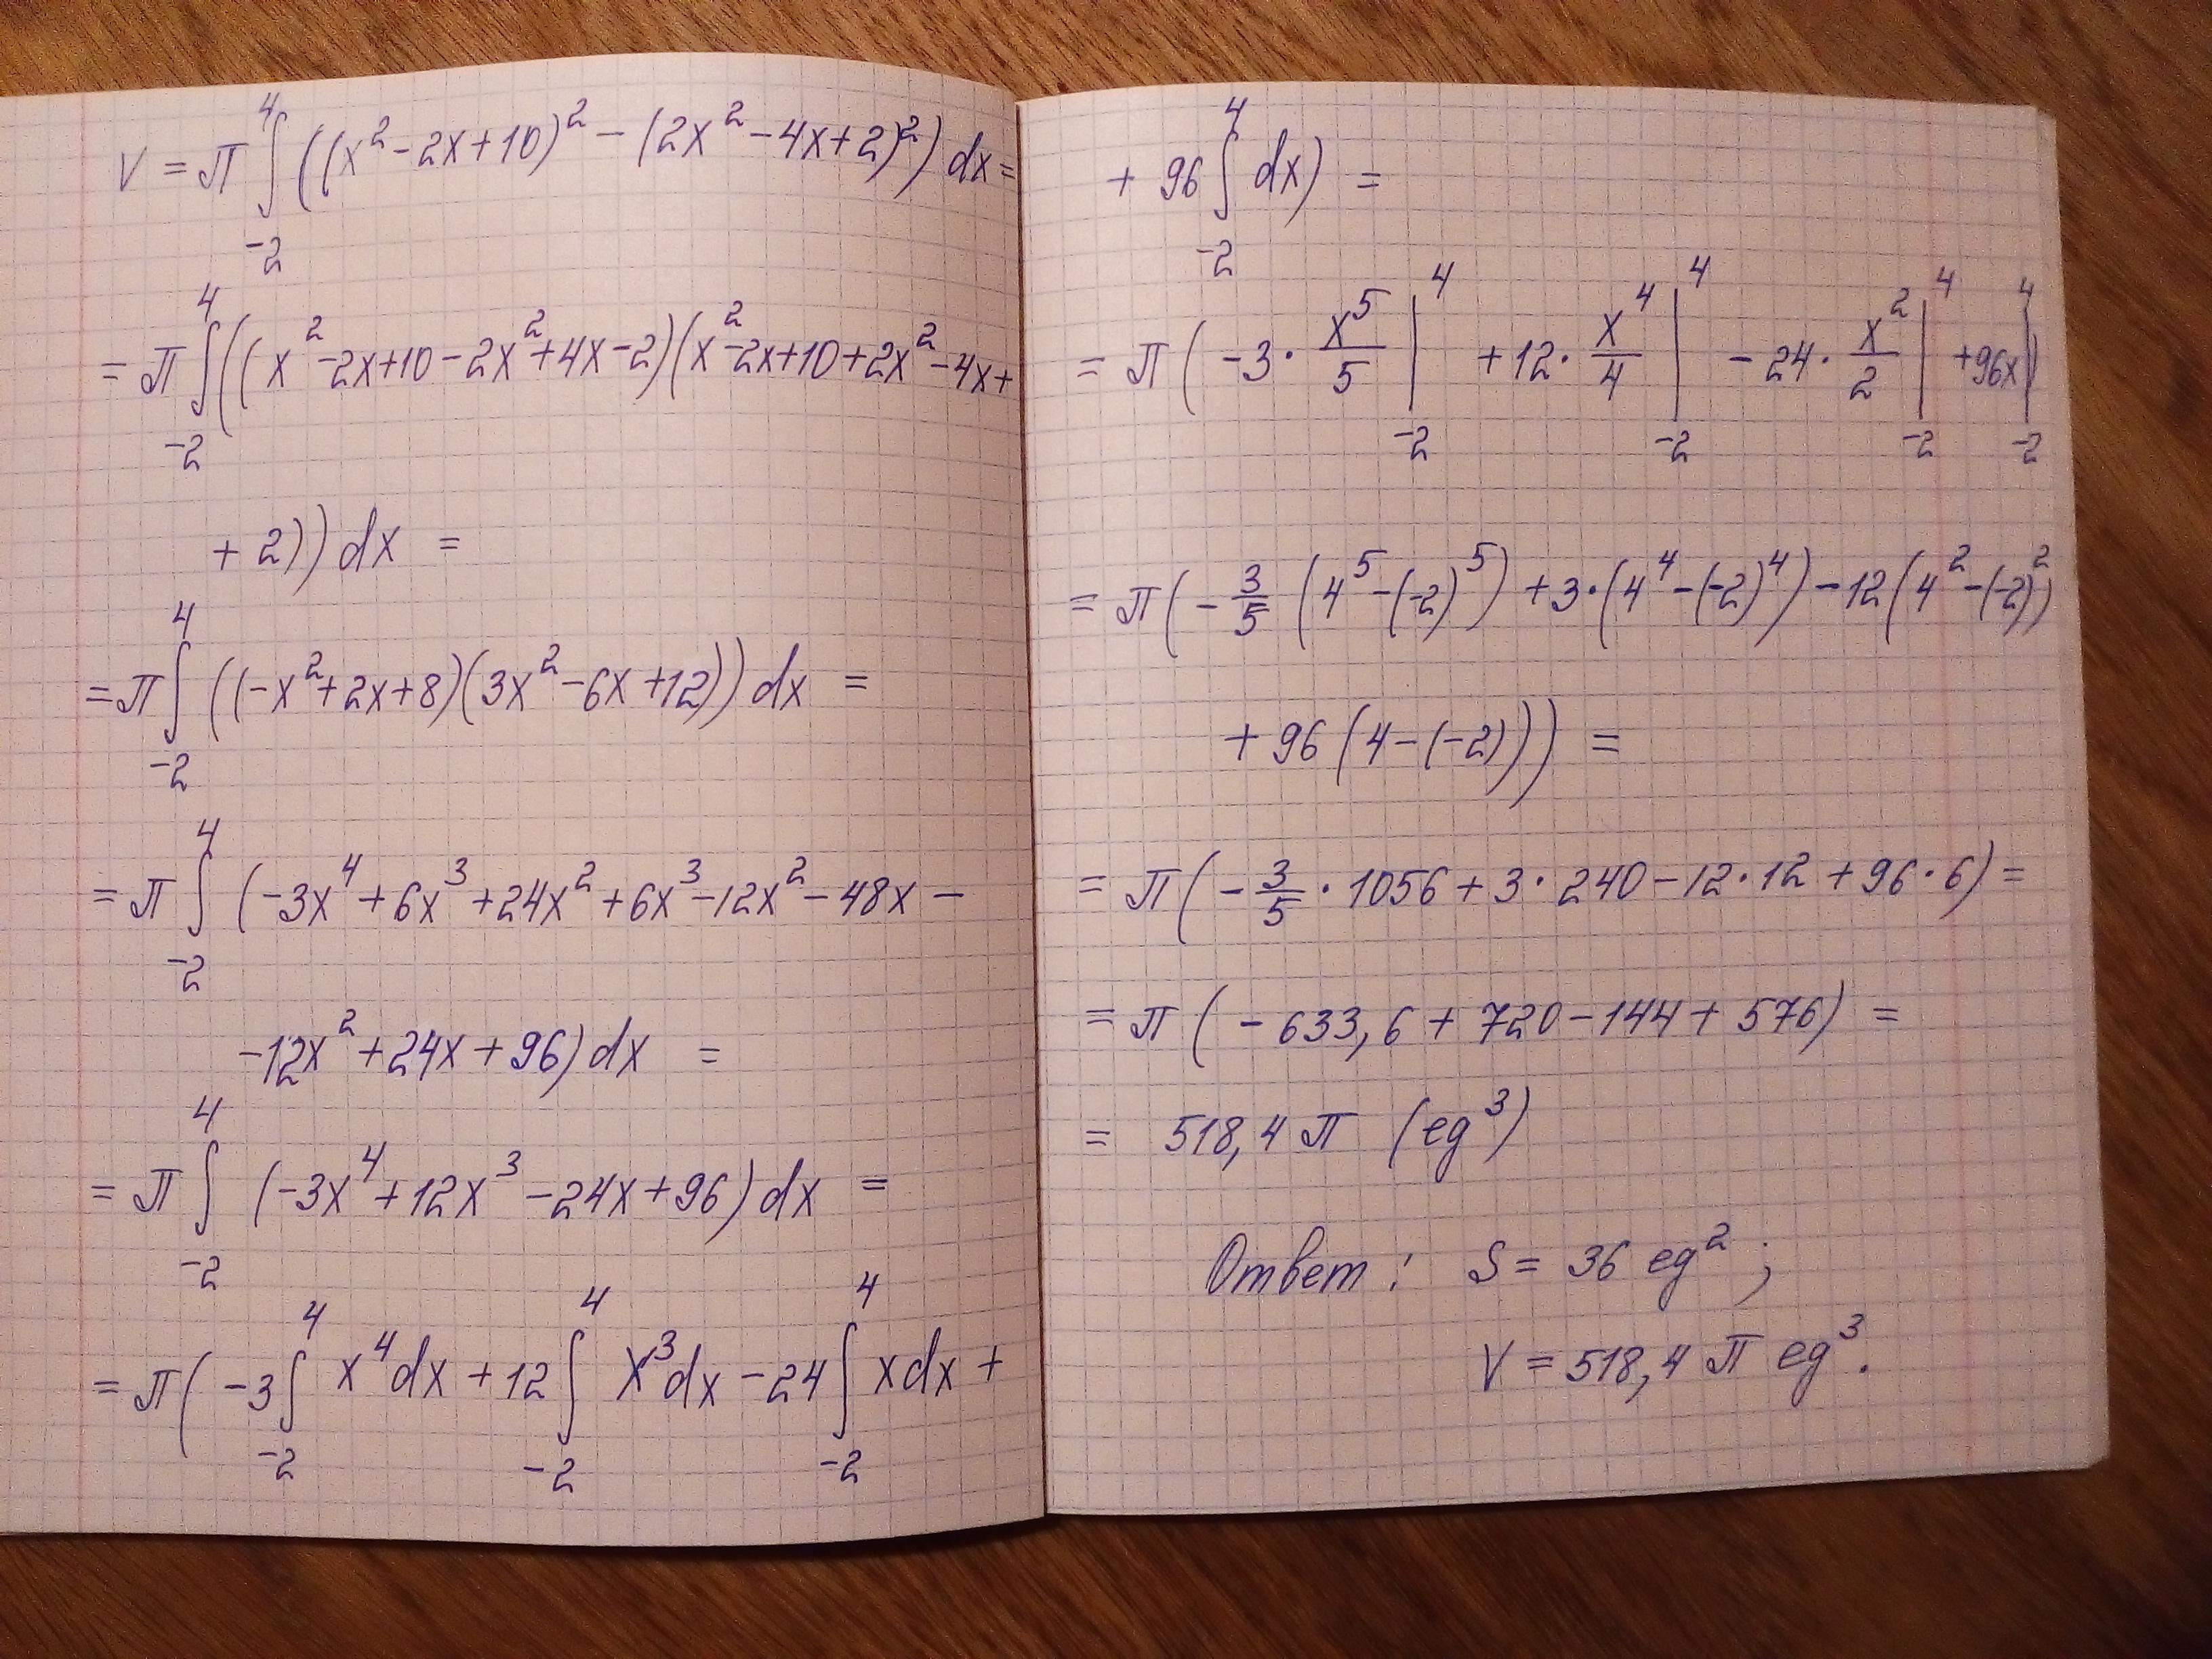 V = π ∫₋₂⁴ ((x² - 2x + 10)² - (2x² - 4x + 2)²) dx =
= π ∫₋₂⁴ ((x² - 2x + 10 - 2x² + 4x - 2)(x² - 2x + 10 + 2x² - 4x +
+ 2)) dx =
= π ∫₋₂⁴ ((-x² + 2x + 8)(3x² - 6x + 12)) dx =
= π ∫₋₂⁴ (-3x⁴ + 6x³ + 24x² + 6x³ - 12x² - 48x -
- 12x² + 24x + 96) dx =
= π ∫₋₂⁴ (-3x⁴ + 12x³ - 24x + 96) dx =
= π ( -3 ∫₋₂⁴ x⁴ dx + 12 ∫₋₂⁴ x³ dx - 24 ∫₋₂⁴ x dx +
+ 96 ∫₋₂⁴ dx) =
= π ( -3 · x⁵/5 |₋₂⁴ + 12 · x⁴/4 |₋₂⁴ - 24 · x²/2 |₋₂⁴ + 96x |₋₂⁴ )
= π ( - 3/5 (4⁵ - (-2)⁵) + 3 · (4⁴ - (-2)⁴) - 12 (4² - (-2)²)
+ 96 (4 - (-2))) =
= π ( - 3/5 · 1056 + 3 · 240 - 12 · 12 + 96 · 6) =
= π ( - 633,6 + 720 - 144 + 576) =
= 518,4 π (ед³)
Ответ: S = 36 ед² ;
V = 518,4 π ед³.